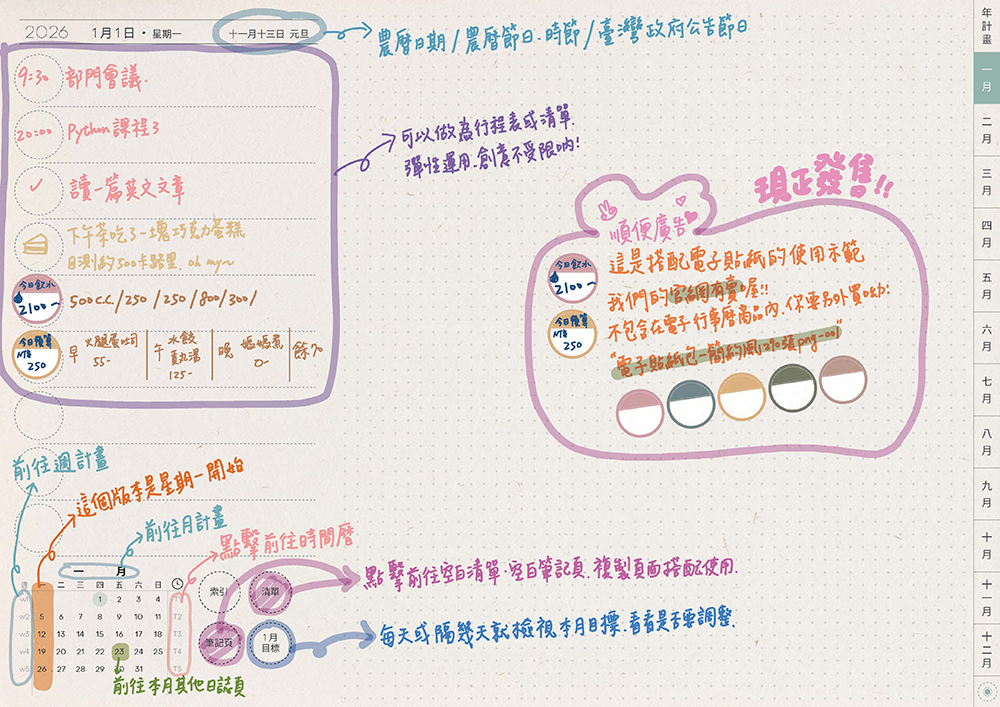 2026 1月1日・星期一 十一月十三日 元旦
農曆日期/農曆節日.時節/臺灣政府公告節日
9:30 部門會議.
20:00 Python 課程3
✓ 讀一篇英文文章
下午茶吃了一塊巧克力蛋糕
目測約500卡路里. oh my~
今日飲水
2100~
500c.c./250/250/800/300/
今日預算
NT$
250
早 火腿蛋吐司 55-
午 水餃 酸辣湯 125-
晚 媽媽煮 0-
餘70
可以做為行程表或清單.
彈性運用.創意不受限吶!
現正發售!!
順便廣告
今日飲水
2100~
今日預算
NT$
250
這是搭配電子貼紙的使用示範
我們的官網有賣喔!!
不包含在電子行事曆商品內.你要另外買呦:
"電子貼紙包-簡約風1290張png-001"
前往週計畫
這個版本是星期一開始
前往月計畫
點擊前往時間曆
一月
週 一 二 三 四 五 六 日
w1 1 2 3 4 T1
w2 5 6 7 8 9 10 11 T2
w3 12 13 14 15 16 17 18 T3
w4 19 20 21 22 23 24 25 T4
w5 26 27 28 29 30 31 T5
索引
清單
筆記頁
1月
目標
點擊前往空白清單.空白筆記頁.複製頁面搭配使用.
每天或隔幾天就檢視本月目標.看看是否要調整.
前往本月其他日誌頁
年計畫
一月
二月
三月
四月
五月
六月
七月
八月
九月
十月
十一月
十二月